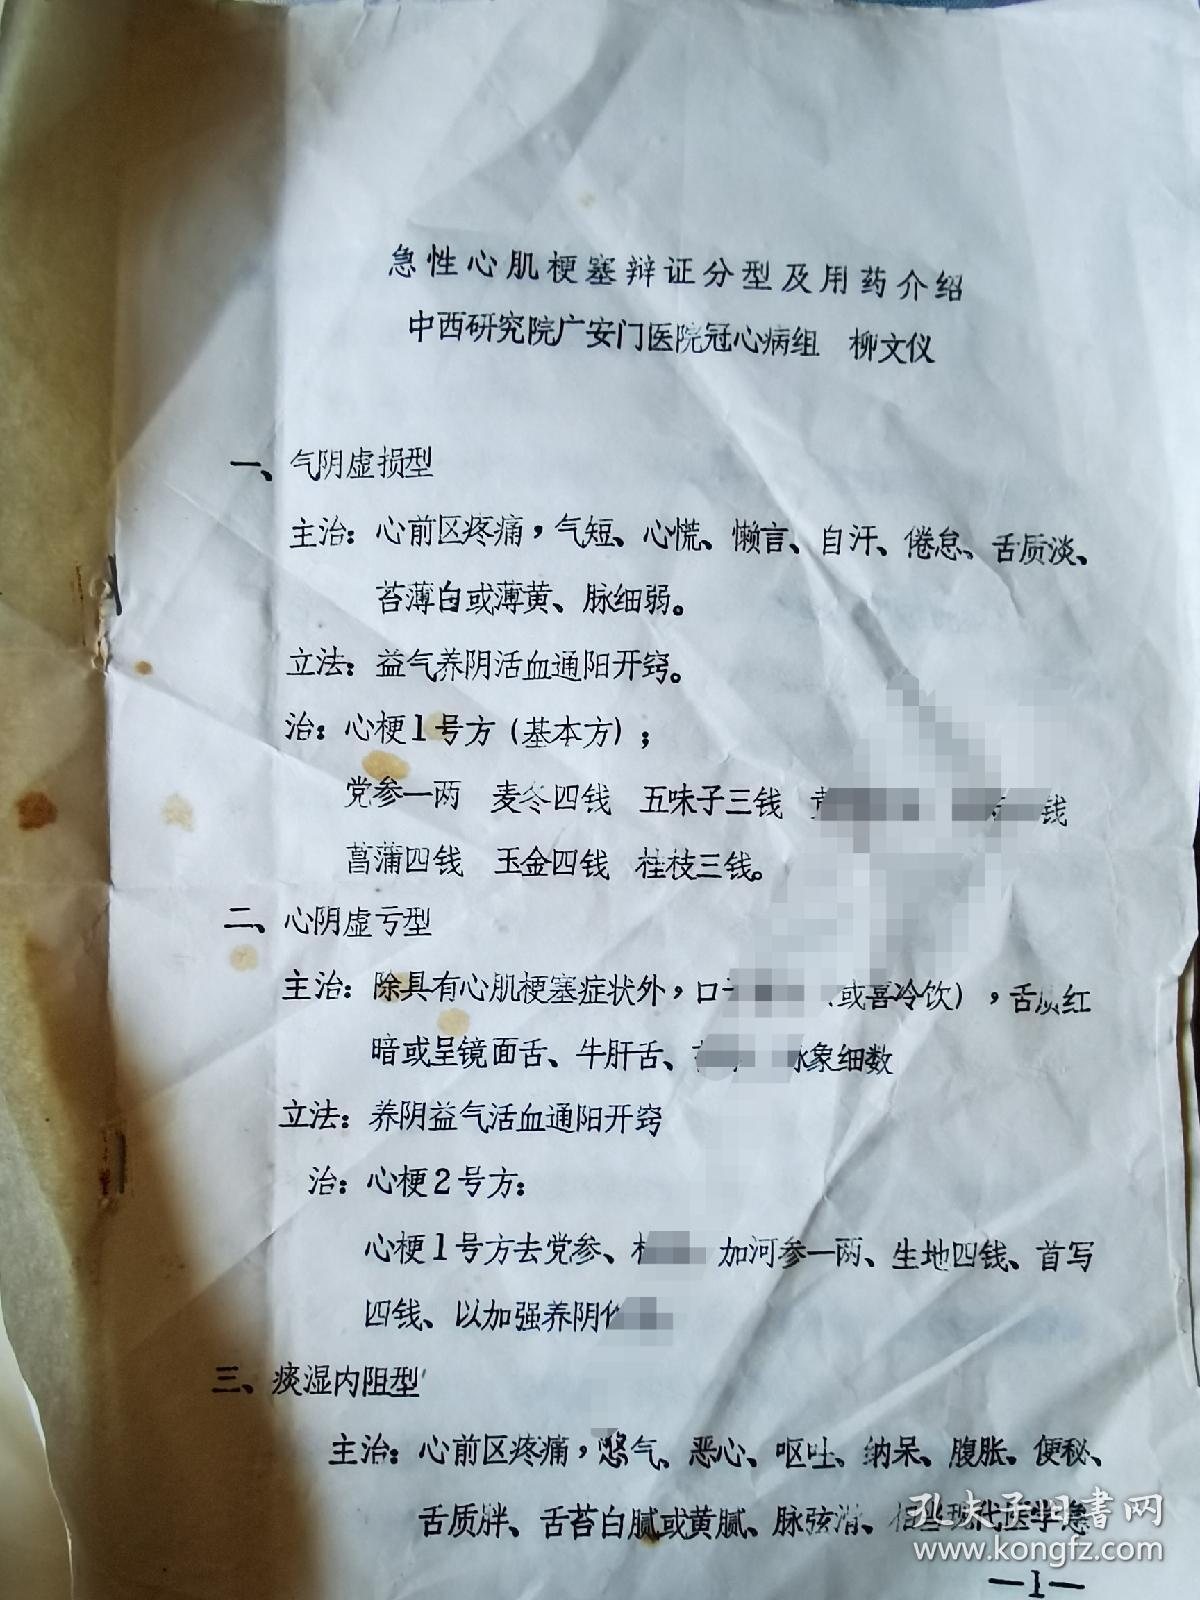 急性心肌梗塞辩证分型及用药介绍
中西研究院广安门医院冠心病组 柳文仪
一、气阴虚损型
主治：心前区疼痛，气短、心慌、懒言、自汗、倦怠、舌质淡、
苔薄白或薄黄、脉细弱。
立法：益气养阴活血通阳开窍。
治：心梗1号方（基本方）；
党参一两 麦冬四钱 五味子三钱 钱
菖蒲四钱 玉金四钱 桂枝三钱。
二、心阴虚亏型
主治：除具有心肌梗塞症状外，口 （或喜冷饮），舌质红
暗或呈镜面舌、牛肝舌、 脉象细数
立法：养阴益气活血通阳开窍
治：心梗2号方：
心梗1号方去党参、 加河参一两、生地四钱、首写
四钱、以加强养阴
三、痰湿内阻型
主治：心前区疼痛，憋气、恶心、呕吐、纳呆、腹胀、便秘、
舌质胖、舌苔白腻或黄腻、脉弦滑、相当现代医学急
孔夫子旧书网
www.kongfz.com
—1—